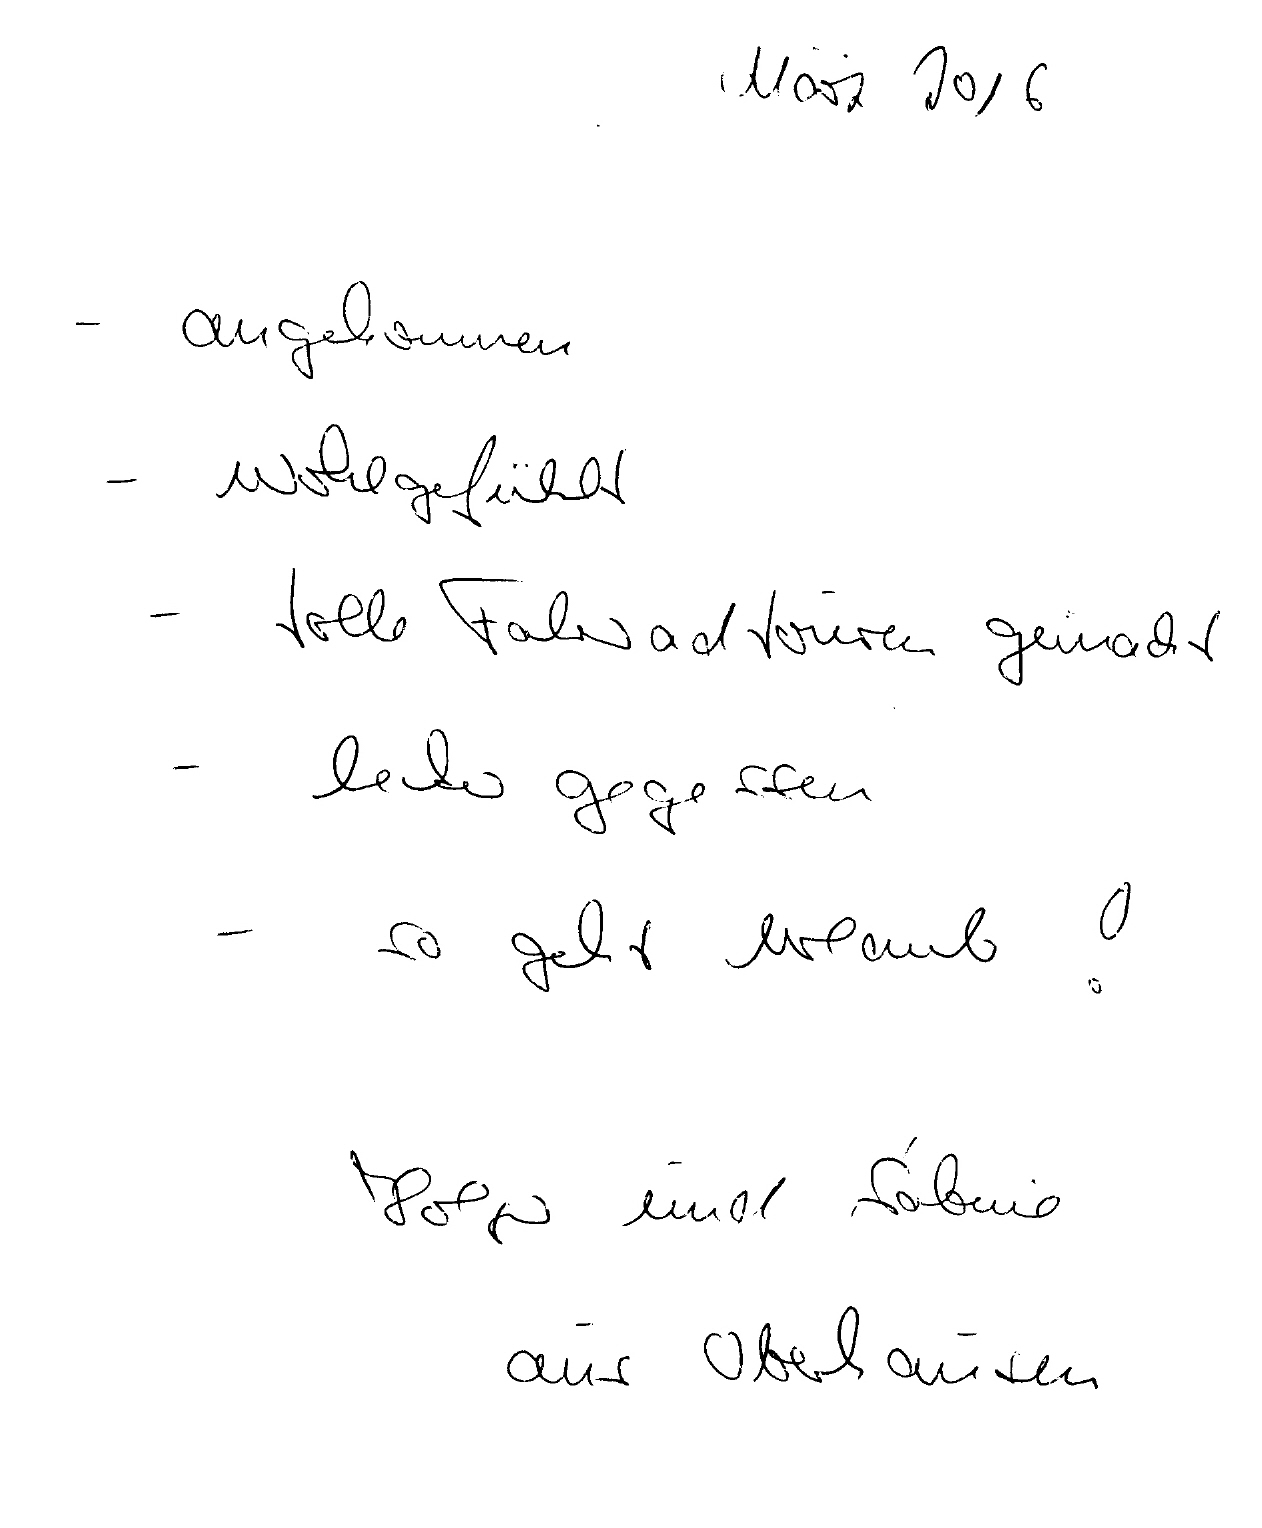 März 2016
- angekommen
- wohlgefühlt
- tolle Fahrradtouren gemacht
- lecker gegessen
- so geht Urlaub !
Holger und Sabine
aus Oberhausen